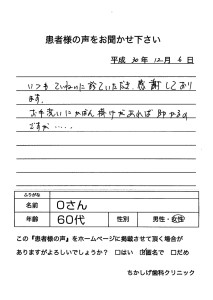 患者様の声をお聞かせ下さい
平成 30年 12月 6日
いつもていねいに診ていただき、感謝しており
ます。
お手洗いにかばん掛けがあれば助かるの
ですが.....
ふりがな
名前 Oさん
年齢 60代 性別 男性・女性
この『患者様の声』をホームページに掲載させて頂く場合が
ありますがよろしいでしょうか? □はい ☑匿名で □だめ
ちかしげ歯科クリニック